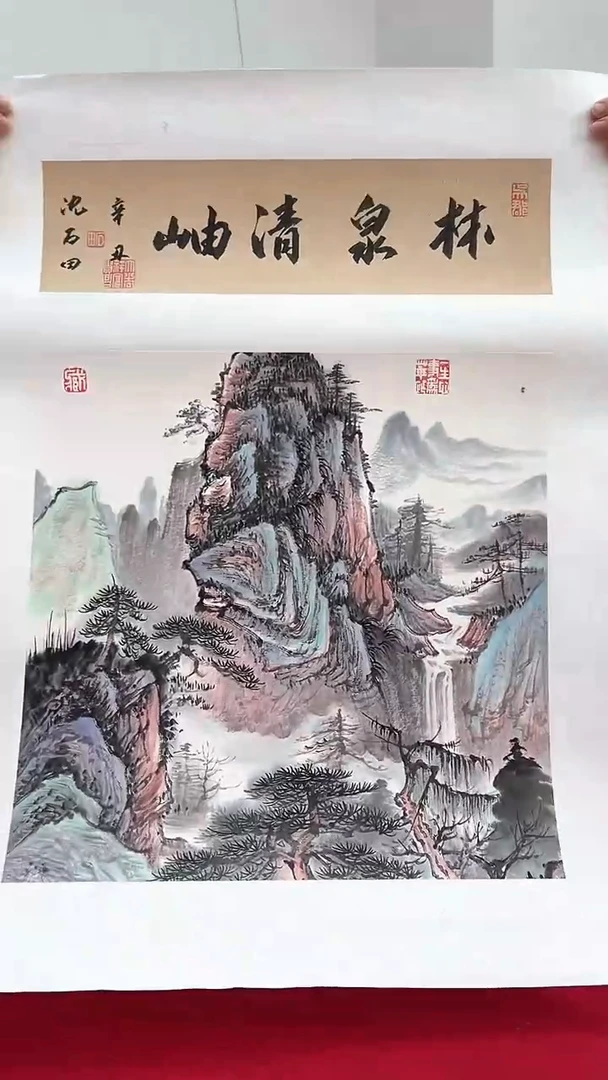 林泉清岫
辛丑
沈石田
藏